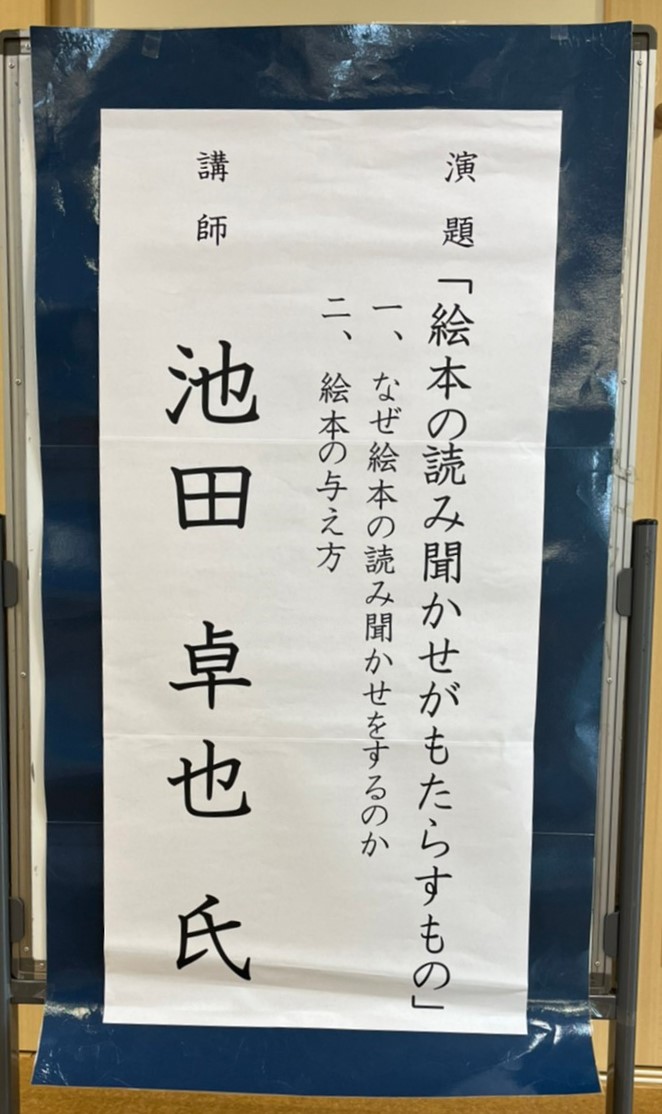 演題「絵本の読み聞かせがもたらすもの」
一、なぜ絵本の読み聞かせをするのか
二、絵本の与え方
講師 池田 卓也 氏